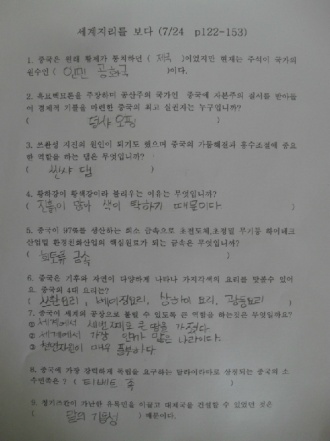 세계지리를 보다 (7/24 p122-153)
1. 중국은 원래 황제가 통치하던 ( 제국 )이었지만 현재는 주석이 국가의
원수인 ( 인민 공화국 )이다.
2. 흑묘백묘론을 주장하며 공산주의 국가인 중국에 자본주의 질서를 받아들
여 경제적 기틀을 마련한 중국의 최고 실권자는 누구입니까?
( 덩샤오핑 )
3. 쓰촨성 지진의 원인이 되기도 했으며 중국의 가뭄해결과 홍수조절에 중요
한 역할을 하는 댐은 무엇입니까?
( 싼샤 댐 )
4. 황허강이 황색강이라 불리우는 이유는 무엇입니까?
( 진흙이 많아 색이 탁하기 때문이다 )
5. 중국이 97%를 생산하는 희소 금속으로 휴대도체,초정밀 무기등 하이테크
산업및 환경친화산업의 핵심원료가 되는 금속은 무엇입니까?
( 희토류 금속 )
6. 중국은 기후와 자연이 다양하게 나타나 가지각색의 요리를 맛볼수 있어
요. 중국의 4대 요리는?
( 쓰촨요리, 베이징요리, 상하이 요리, 광둥요리 )
7. 중국이 세계의 공장으로 불릴 수 있도록 큰 역할을 하는것은 무엇일까요?
① 세계에서 세번째로 큰 땅을 가졌다.
② 세계에서 가장 인구가 많은 나라이다.
③ 천연자원이 매우 풍부하다.
8. 중국에 가장 강력하게 독립을 요구하는 달라이라마로 상징되는 중국의 소
수민족은 ? ( 티베트 족 )
9. 칭기즈칸이 가난한 유목민을 이끌고 대제국을 건설할 수 있었던 것은
( 말의 기동성 ) 때문이다.